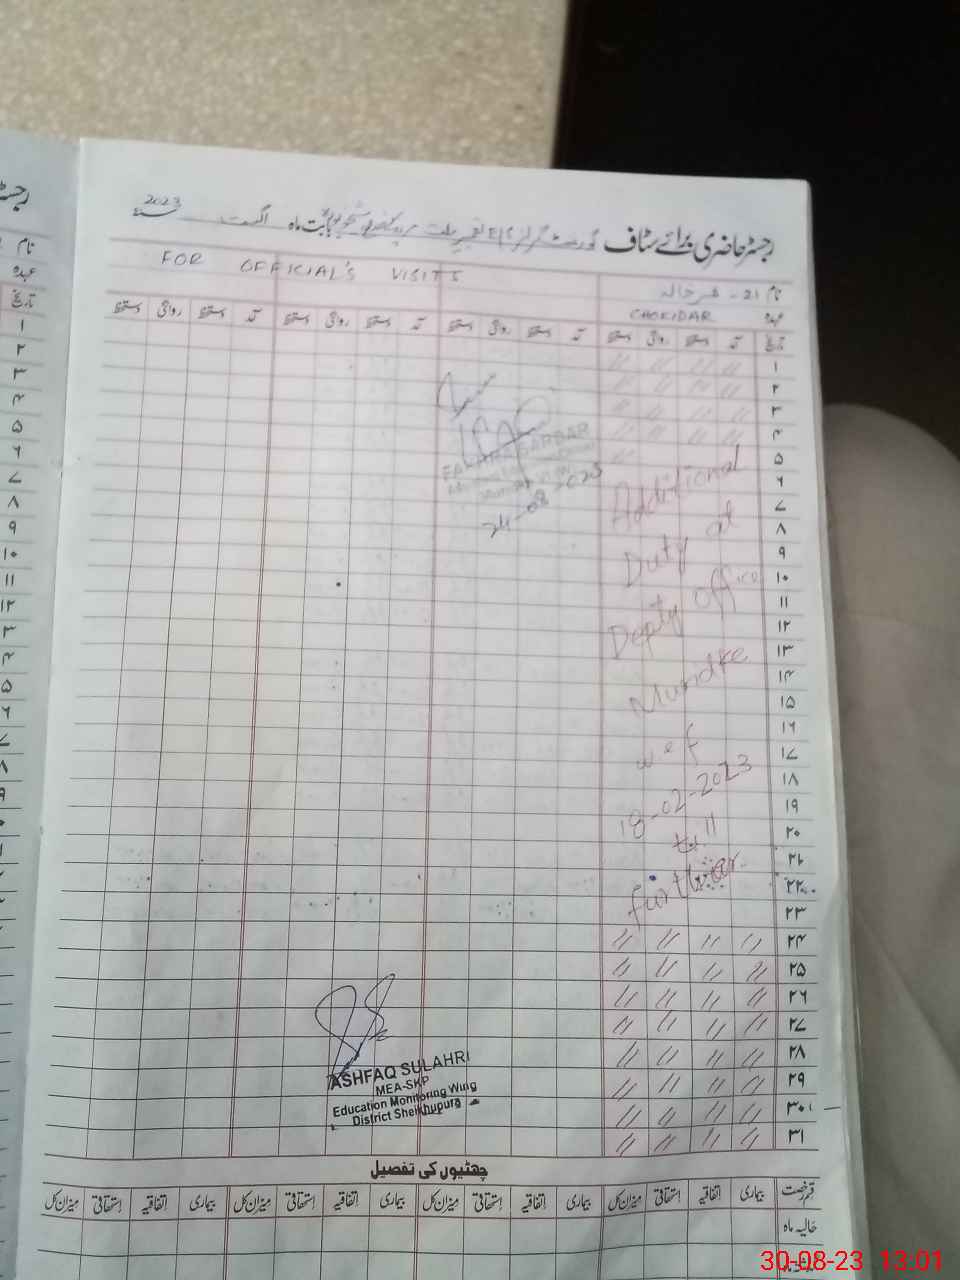 2023
رجسٹر حاضری برائے سٹاف گورنمنٹ گرلز بابت ماہ اگست
FOR OFFICIAL'S VISITS
نام 21-
عہدہ CHOKIDAR
تاریخ آمد دستخط روانگی دستخط آمد دستخط روانگی دستخط آمد دستخط روانگی دستخط آمد دستخط روانگی دستخط
۱
۲
۳
۴
۵
۶
۷
۸
۹
۱۰
۱۱
۱۲
۱۳
۱۴
۱۵
۱۶
۱۷
۱۸
۱۹
۲۰
۲۱
۲۲
۲۳
۲۴
۲۵
۲۶
۲۷
۲۸
۲۹
۳۰
۳۱
SARDAR
24-08-2023
Additional
Duty at
Depty Office
Muridke
w e f
18-02-2023
till
further
ASHFAQ SULAHRI
MEA-SKP
Education Monitoring Wing
District Sheikhupura
چھٹیوں کی تفصیل
قسم رخصت بیماری اتفاقیہ استحقاقی میزان کل بیماری اتفاقیہ استحقاقی میزان کل بیماری اتفاقیہ استحقاقی میزان کل بیماری اتفاقیہ استحقاقی میزان کل
حالیہ ماہ
30-08-23 13:01